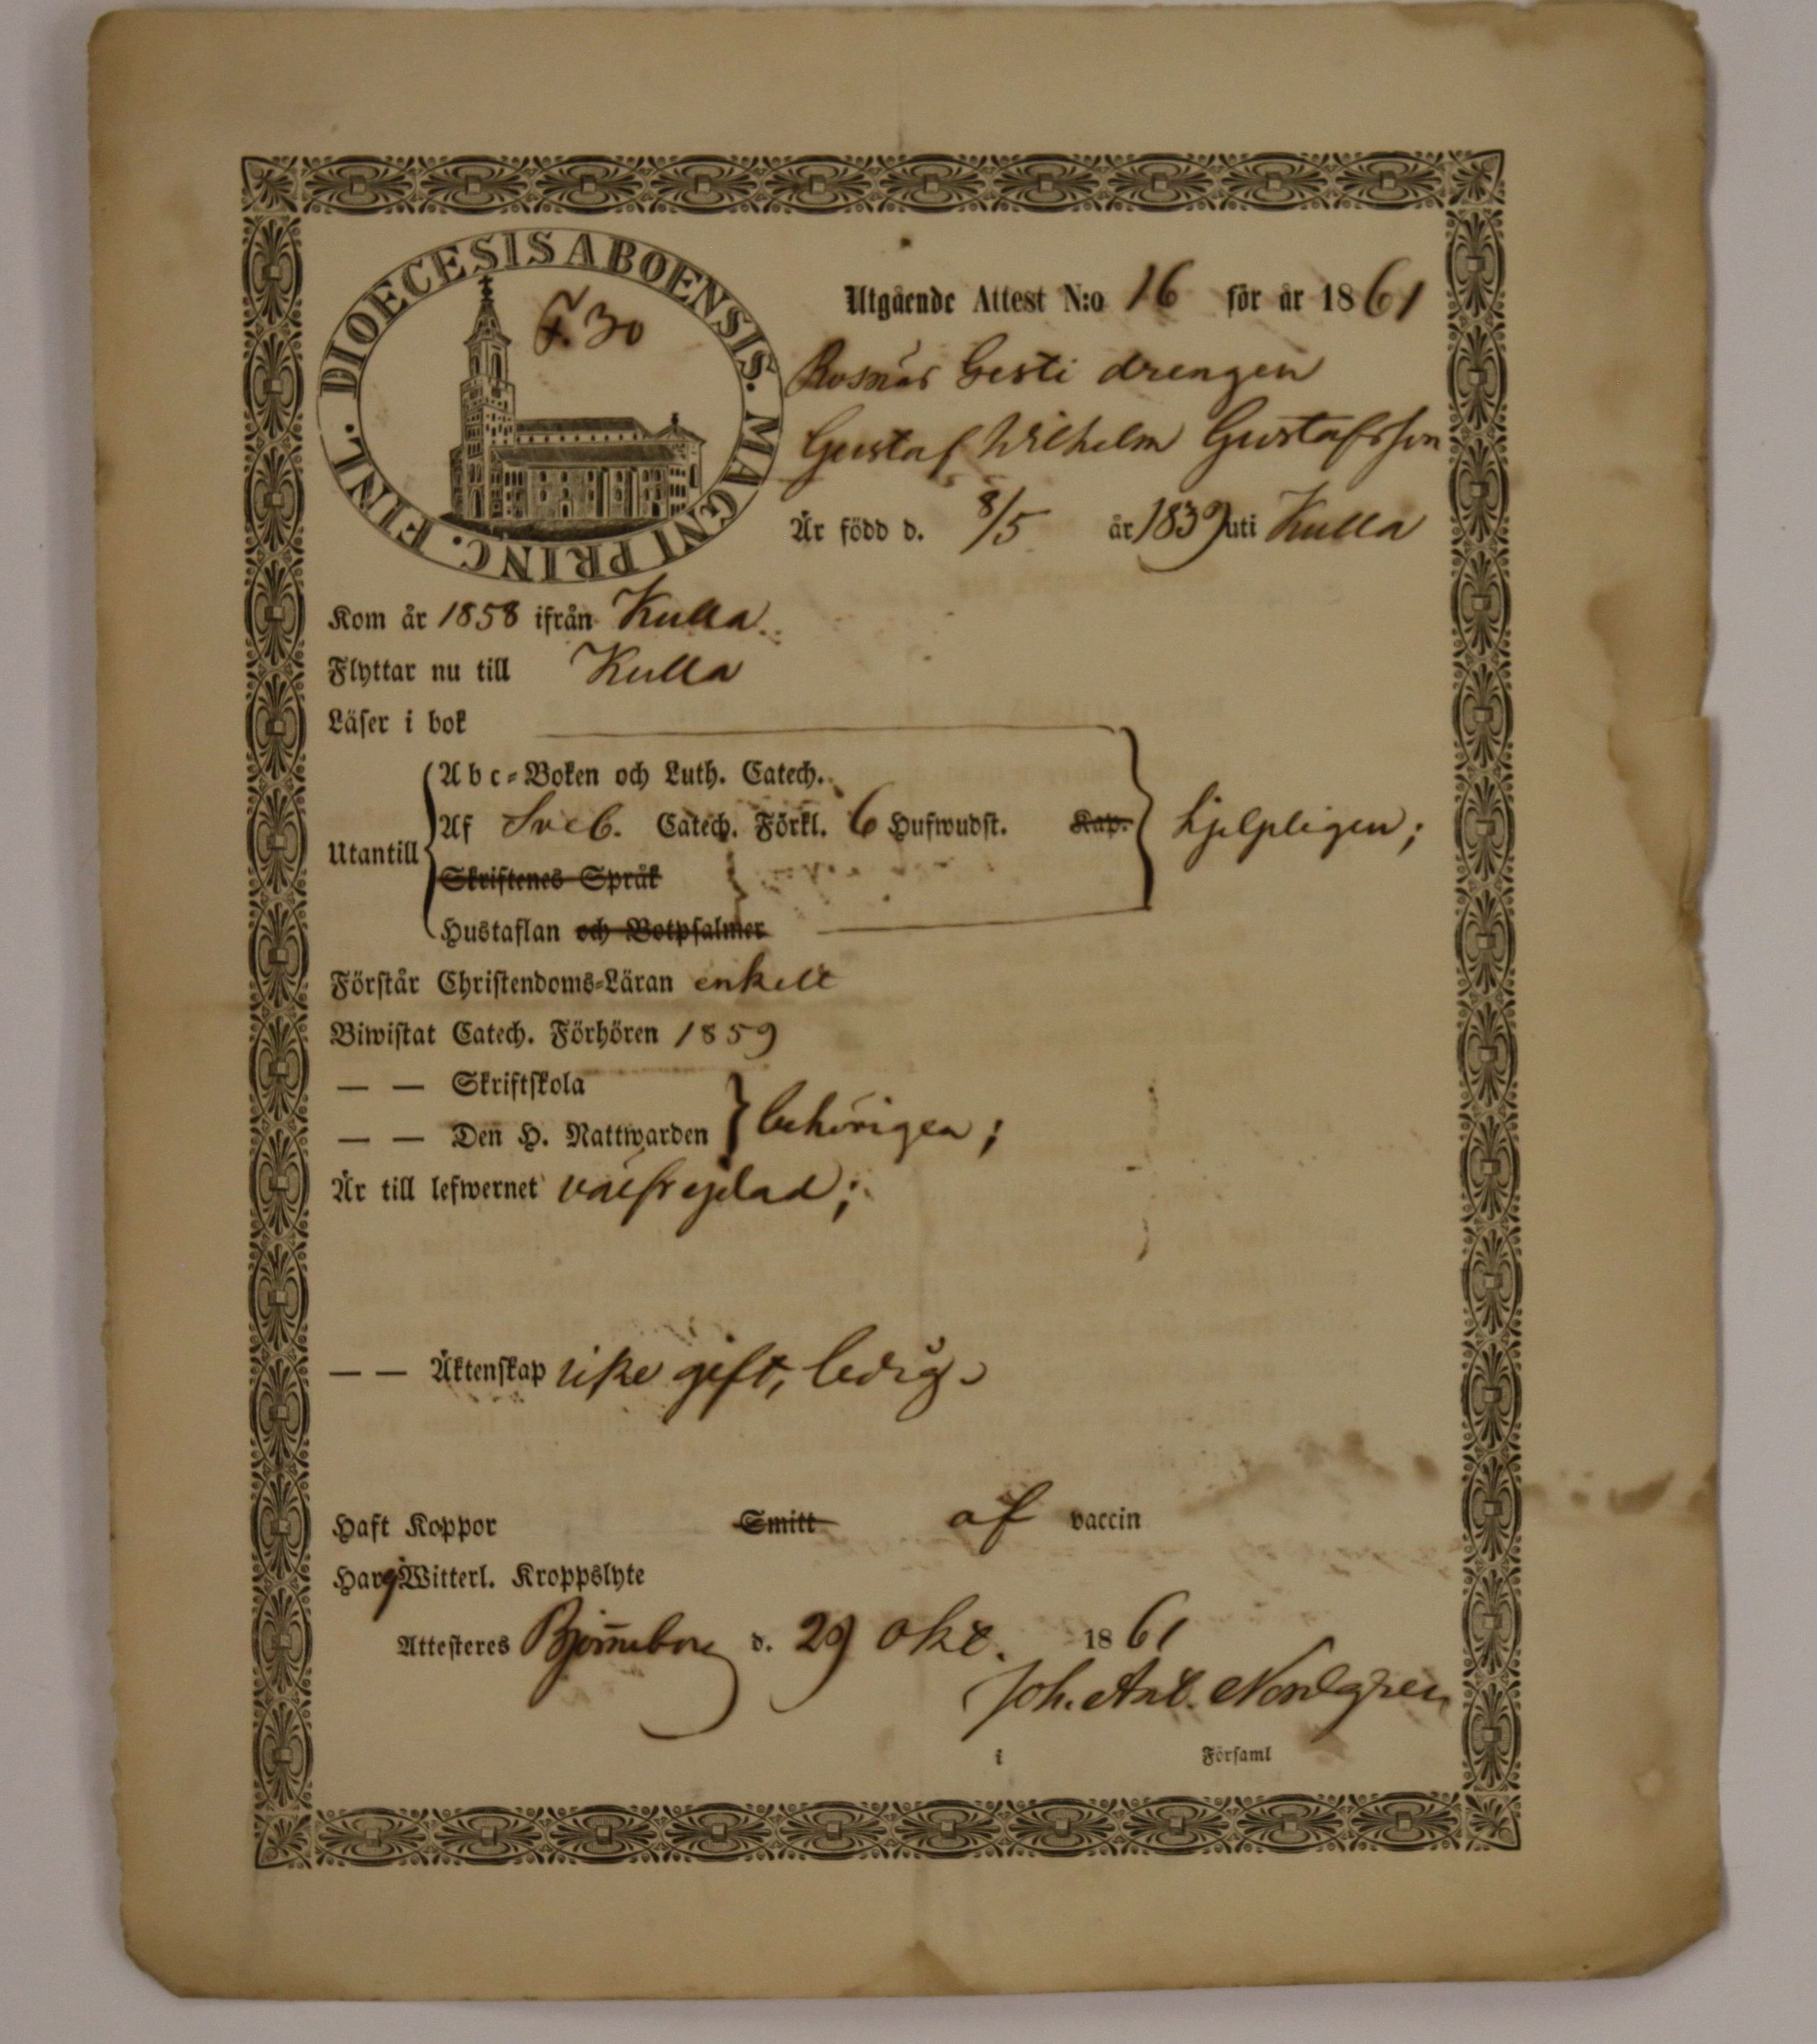 DIOECESIS ABOENSIS. MAGNI PRINC. FINL.
F. 30
Utgående Attest N:o 16 för år 1861
Rosnäs Gesti drengen
Gustaf Wilhelm Gustafsson
Är född d. 8/5 år 1839 uti Kulla
Kom år 1858 ifrån Kulla.
Flyttar nu till Kulla
Läser i bok
Abc-Boken och Luth. Catech.
Utantill
Af Sveb. Catech. Förkl. 6 Hufwudst. Kap. hjelpligen;
Skriftenes Språk
Hustaflan och Botpsalmer
Förstår Christendoms-Läran enkelt
Biwistat Catech. Förhören 1859
— — Skriftskola
— — Den H. Nattwarden behörigen;
Är till lefwernet välfrejdad;
— — Äktenskap icke gift, ledig.
Haft Koppor Smitt af vaccin
Har ej Witterl. Kroppslyte
Attesteres Björneborg d. 29 Okt. 1861
Joh. Ant. Nordgren
i Församl